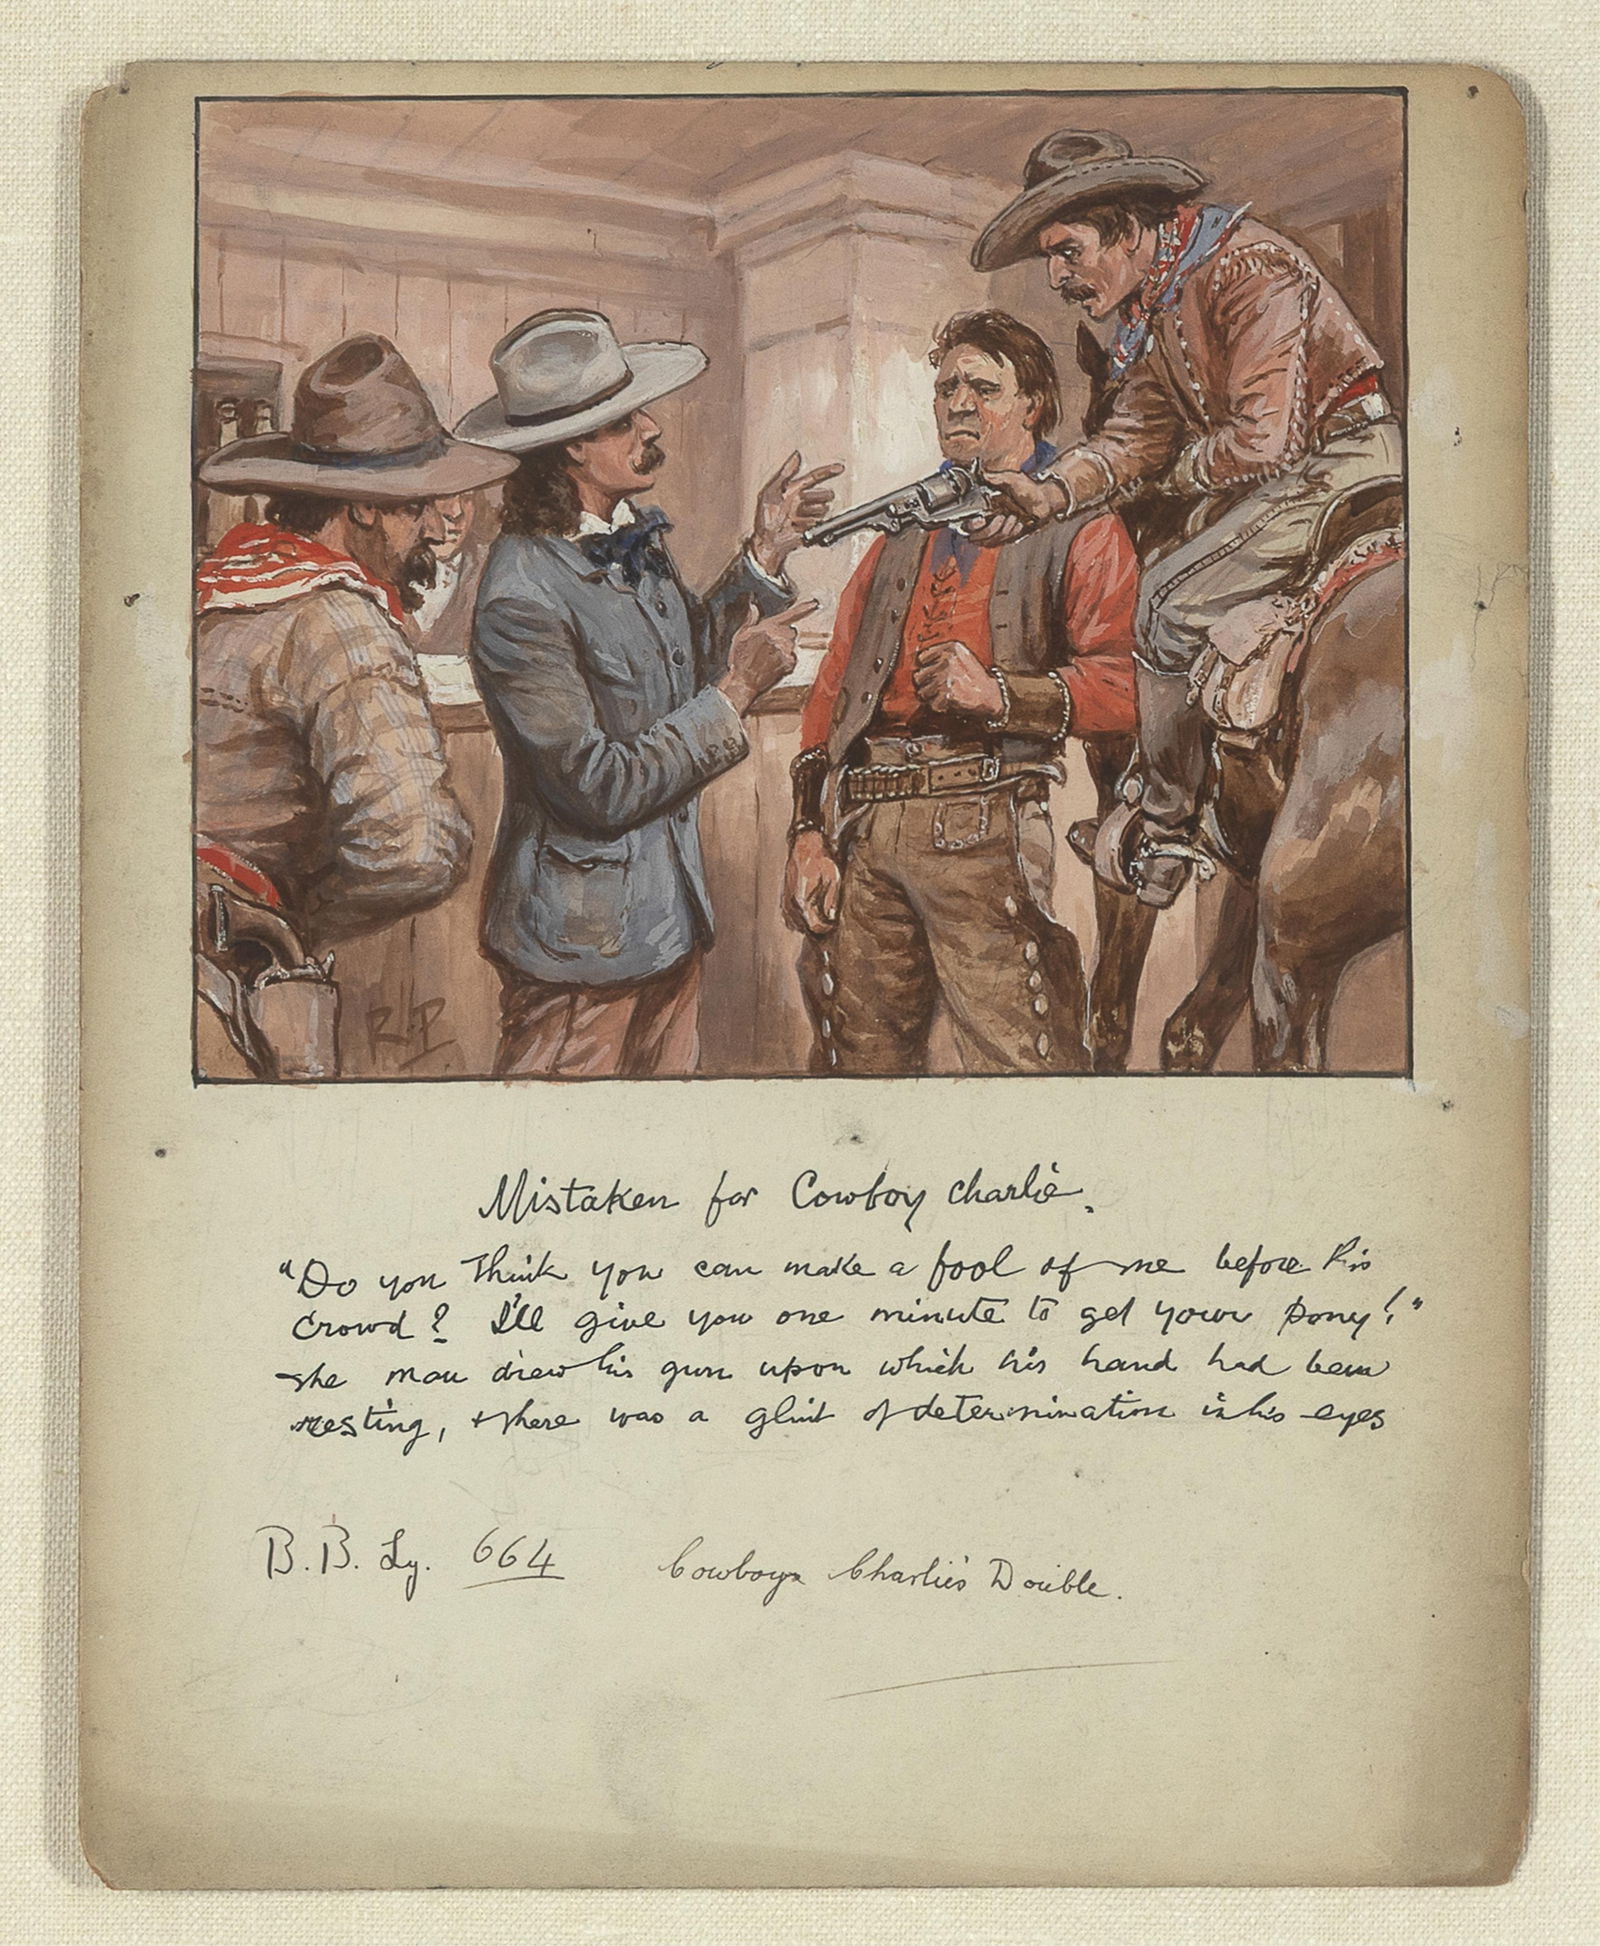 R.P.
Mistaken for Cowboy Charlie.
"Do you think you can make a fool of me before his
crowd? I'll give you one minute to get your pony!"
The man drew his gun upon which his hand had been
resting, & there was a glint of determination in his eyes
B.B. Ly. 664 Cowboy Charlie's Double.